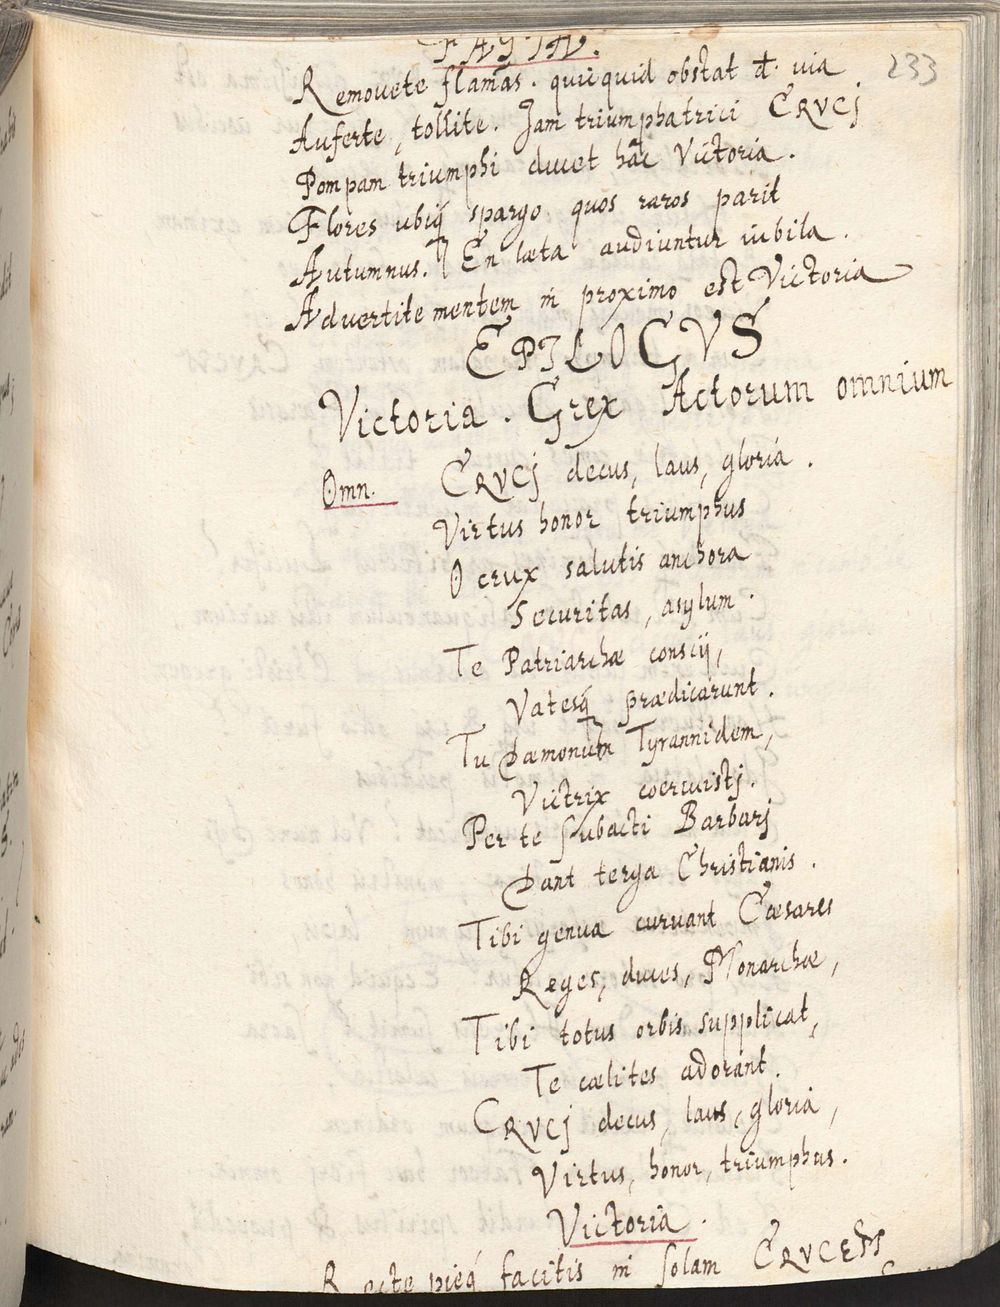 233
Remouete flamās. quicquid obstat đ. uia
Auferte, tollite. Jam triumphatrici CRVCj
Pompam triumphi ducet hāc Victoria.
Flores ubiq́ spargo quos raros parit
Autumnus. En læta audiuntur iubila.
Advertite mentem in proximo est Victoria
EPILOGVS
Victoria. Grex Actorum omnium
Omn. CRVCj decus, laus, gloria.
Virtus honor triumphus
O crux salutis anchora
Securitas, asylum.
Te Patriarchæ conscij,
Vatesq́ prædicarunt.
Tu Dæmonum Tyrannidem,
Victrix coercuistj.
Per te subacti Barbarj
Dant terga Christianis.
Tibi genua curuant Cæsares
Reges, duces, Monarchæ,
Tibi totus orbis supplicat,
Te cælites adorant.
CRVCj decus, laus, gloria,
Virtus, honor, triumphus.
Victoria.
Recte pieq́ facitis in solam CRVCEM